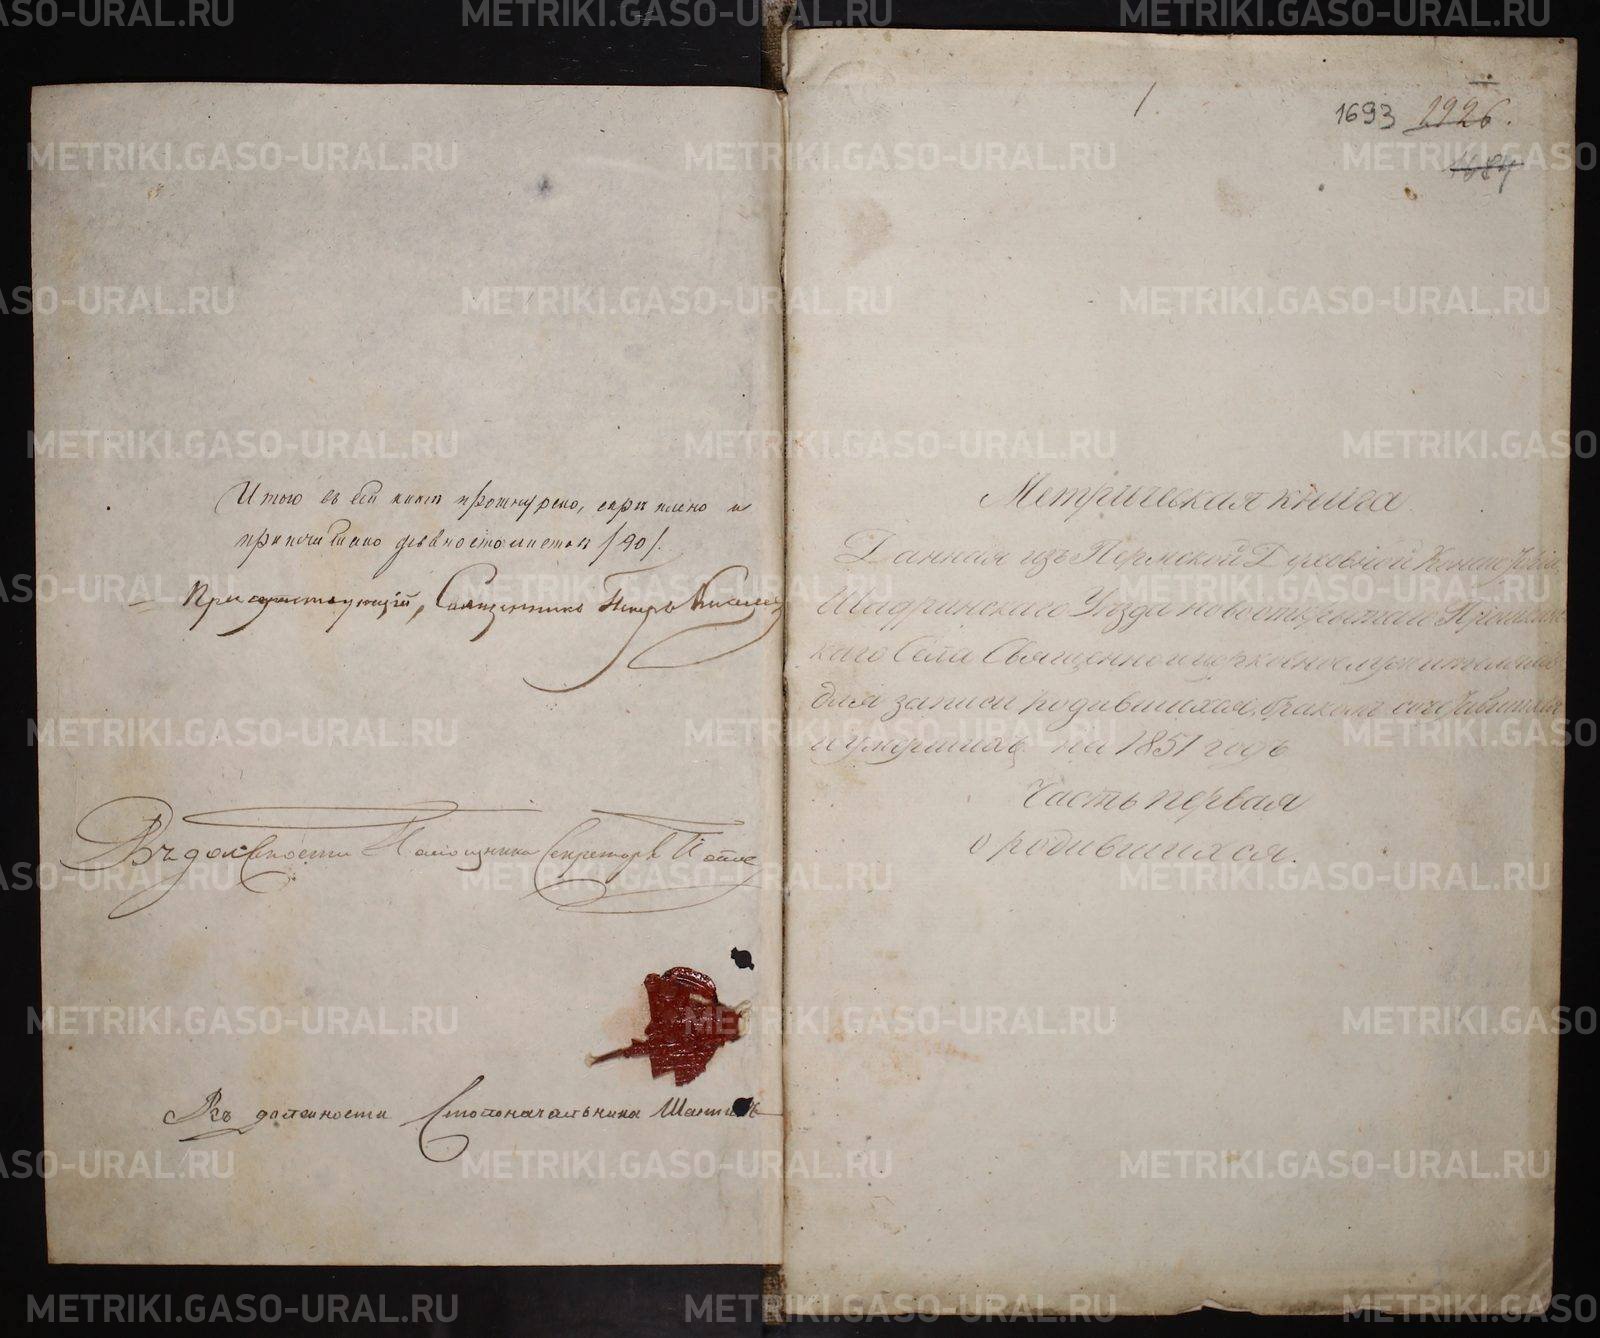 Итого въ сей книгѣ прошнуровано, скрѣплено и
припечатано девяносто листовъ /90/.
Присутствующій, Священникъ Петръ
Въ должности Помощника Секретаря Попов
Въ должности Столоначальника
1
1693 2926.
1684
Метрическая книга
Данная изъ Пермской Духовной Консисторіи,
Шадринскаго Уѣзда новооткрытаго
каго Села Священноцерковнослужителямъ
для записи родившихся, бракомъ сочетавшихся
и умершихъ на 1851 годъ
Часть первая
о родившихся.
METRIKI.GASO-URAL.RU